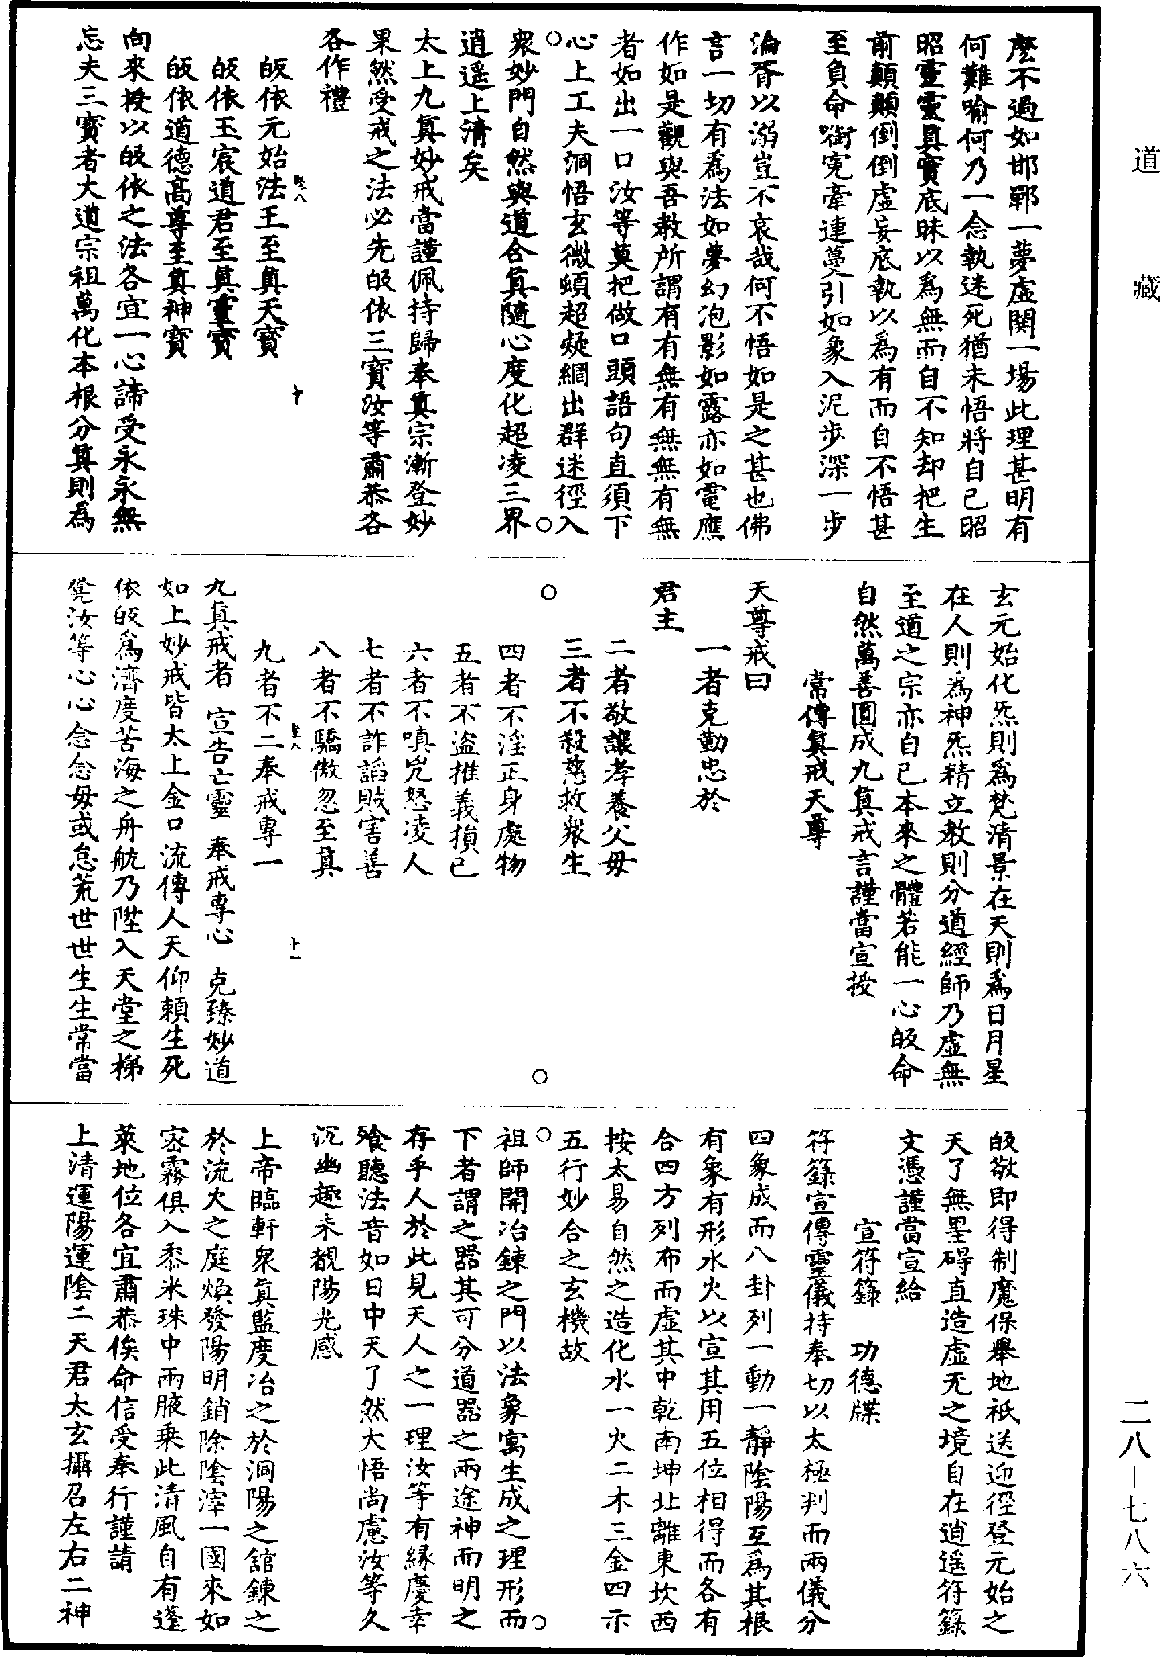 道藏
麽不過如邯鄲一夢虛闋一場此理甚明有
何難喻何乃一念執迷死猶未悟將自己昭
昭靈靈真實底昧以爲無而自不知却把生
前顛顛倒倒虛妄底執以爲有而自不悟甚
至負命啣寃牽連蔓引如象入泥步深一步
淪胥以溺豈不哀哉何不悟如是之甚也佛
言一切有爲法如夢幻泡影如露亦如電應
作如是觀與吾教所謂有有無有無無有無
者如出一口汝等莫把做口頭語句直須下
心上工夫洞悟玄微頓超凝網出群迷徑入
衆妙門自然與道合真隨心度化超凌三界
逍遥上清矣
太上九真妙戒當謹佩持歸奉真宗漸登妙
果然受戒之法必先皈依三寳汝等肅恭各
各作禮
皈依元始法王至真天寳
十
皈依玉宸道君至真靈寳
皈依道德髙尊至真神寳
向來授以皈依之法各宜一心諦受永永無
忘夫三寳者大道宗祖萬化本根分真則爲
玄元始化炁則爲梵清景在天則爲日月星
在人則爲神炁精立教則分道經師乃虛無
至道之宗亦自己本來之體若能一心皈命
自然萬善圓成九真戒言謹當宣授
常傳真戒天尊
天尊戒曰
一者克勤忠於
君主
二者敬讓孝養父母
三者不殺慈救衆生
四者不淫正身處物
五者不盗推義損己
六者不嗔兇怒凌人
七者不詐謟賊害善
八者不驕傲忽至真
九者不二奉戒專一
十一
九真戒者　宣告亡靈　奉戒專心　克臻妙道
如上妙戒皆太上金口流傳人天仰賴生死
依皈爲濟度苦海之舟航乃陞入天堂之梯
凳汝等心心念念毋或怠荒世世生生常當
皈敬即得制魔保舉地祇送迎徑登元始之
天了無罣碍直造虛无之境自在逍遥符籙
文憑謹當宣給
宣符籙　功德牒
符籙宣傳靈儀持奉切以太極判而兩儀分
四象成而八卦列一動一靜陰陽互爲其根
有象有形水火以宣其用五位相得而各有
合四方列布而虛其中乾南坤北離東坎西
按太易自然之造化水一火二木三金四示
五行妙合之玄機故
祖師開冶鍊之門以法象寓生成之理形而
下者謂之器其可分道器之兩途神而明之
存乎人於此見天人之一理汝等有縁慶幸
飱聽法音如日中天了然大悟尚慮汝等久
沉幽趣未覩陽光感
上帝臨軒衆真監度冶之於洞陽之舘鍊之
於流火之庭煥發陽明銷除陰滓一國來如
宻霧俱入黍米珠中兩腋乗此清風自有蓬
萊地位各宜肅恭俟命信受奉行謹請
上清運陽運陰二天君太玄攝召左右二神
二八—七八六